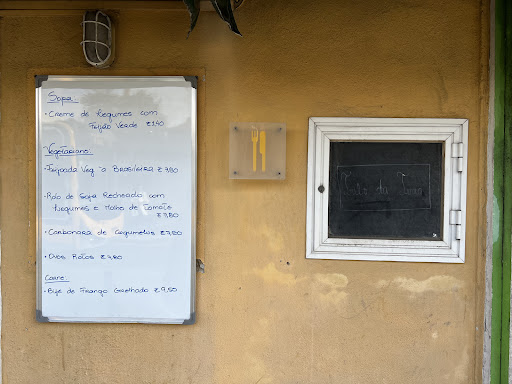 Sopa:
• Creme de Legumes com
Feijão Verde € 1,40
Vegetariano:
• Feijoada Veg. à Brasileira € 7,80
• Rolo de Soja Recheado com
Legumes e Molho de Tomate
€ 7,80
• Carbonara de Cogumelos € 7,80
• Ovos Rotos € 7,80
Carne:
• Bife de Frango Grelhado € 7,50
da